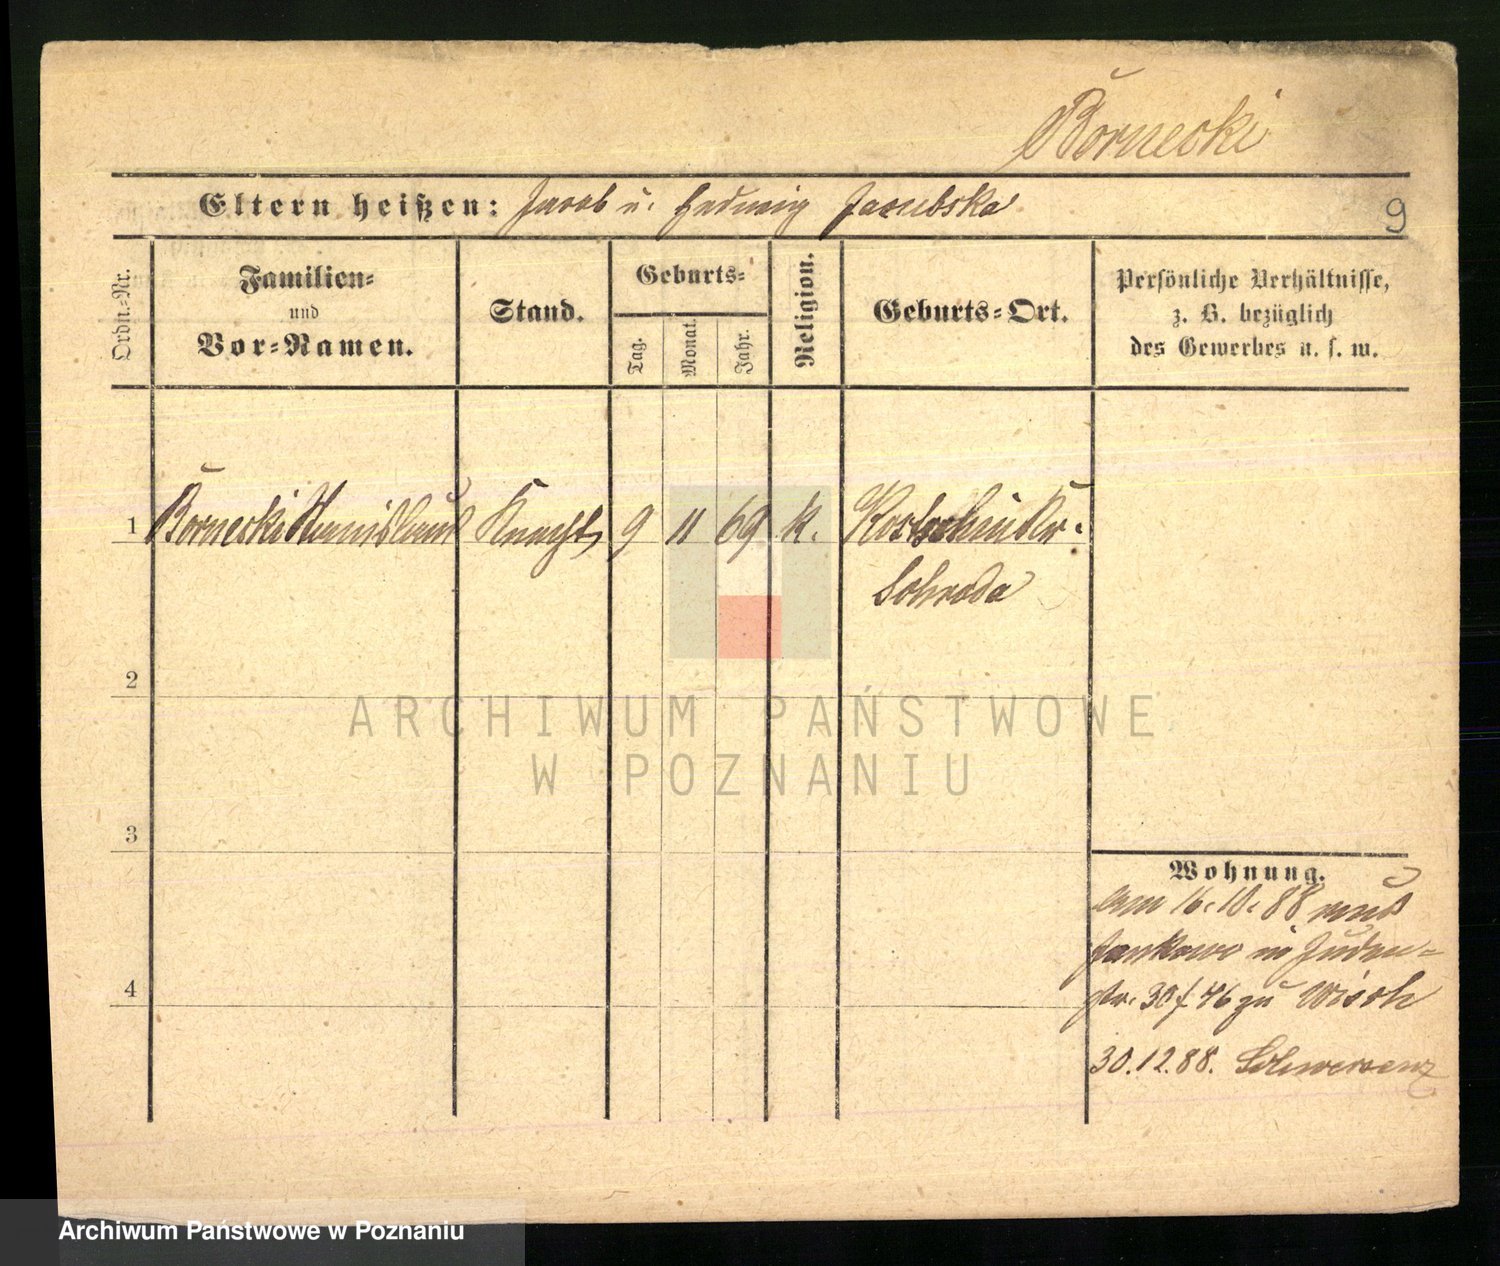 Bornecki
Eltern heißen: Jacob u. Hedwig Jacubska
9
Ordn.-Nr.
Familien-
und
Vor-Namen.
Stand.
Geburts-
Tag.
Monat.
Jahr.
Religion.
Geburts-Ort.
Persönliche Verhältnisse,
z. B. bezüglich
des Gewerbes u. s. w.
1 Bornecki Stanislaus Knecht 9 11 69 k. Kostschin Kr.
Schroda
2
3
4
Wohnung.
am 16.10.88 aus
Jankowo in Juden-
str. 30/ 46 zu
30.12.88. Schwersenz
ARCHIWUM PAŃSTWOWE
W POZNANIU
Archiwum Państwowe w Poznaniu